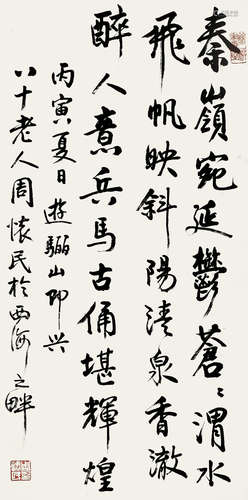 秦嶺宛延鬱蒼蒼渭水
飛帆映斜陽清泉香澈
醉人意兵馬古俑堪輝煌
丙寅夏日遊驪山即興
八十老人周懷民於西海之畔